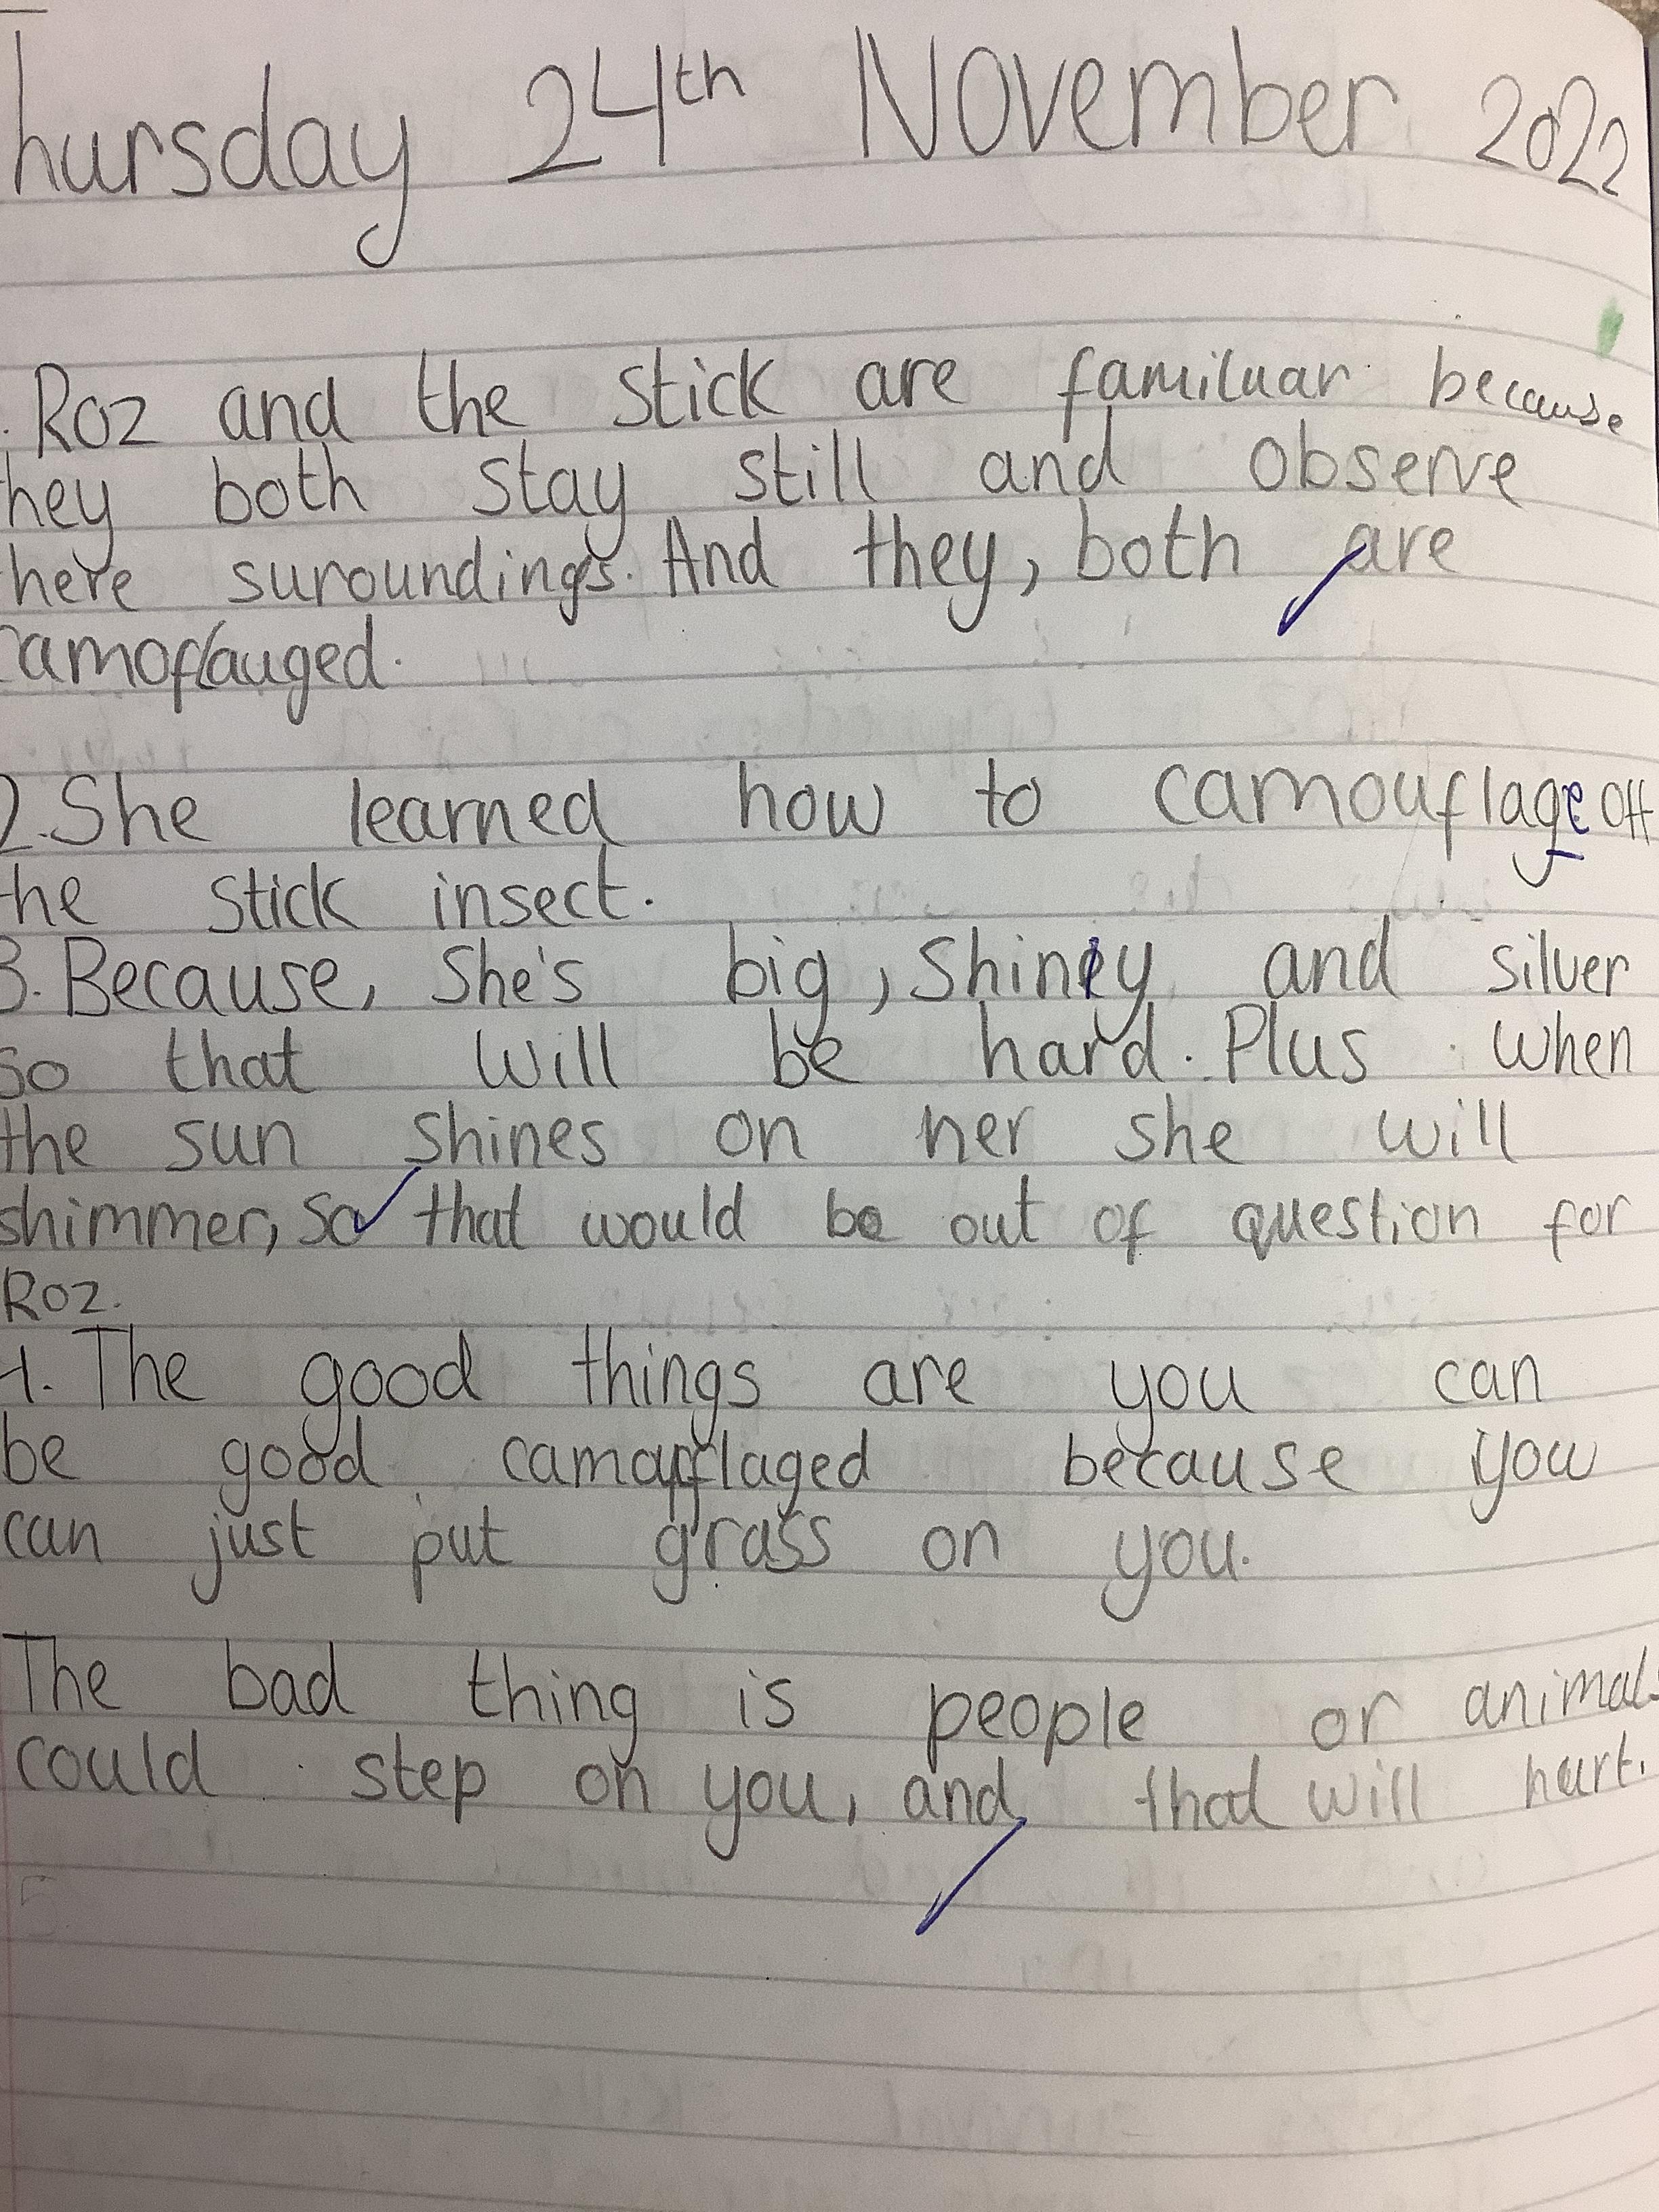 hursday 24th November 2022
. Roz and the stick are familuar because
hey both stay still and observe
here suroundings. And they, both are
camoflauged.
2. She learned how to camouflage off
the stick insect.
3. Because, She's big, Shiney and silver
so that will be hard. Plus when
the sun shines on her she will
shimmer, so that would be out of question for
Roz.
4. The good things are you can
be good camouflaged because you
can just put grass on you.
The bad thing is people or animals
could step on you, and that will hurt.
5